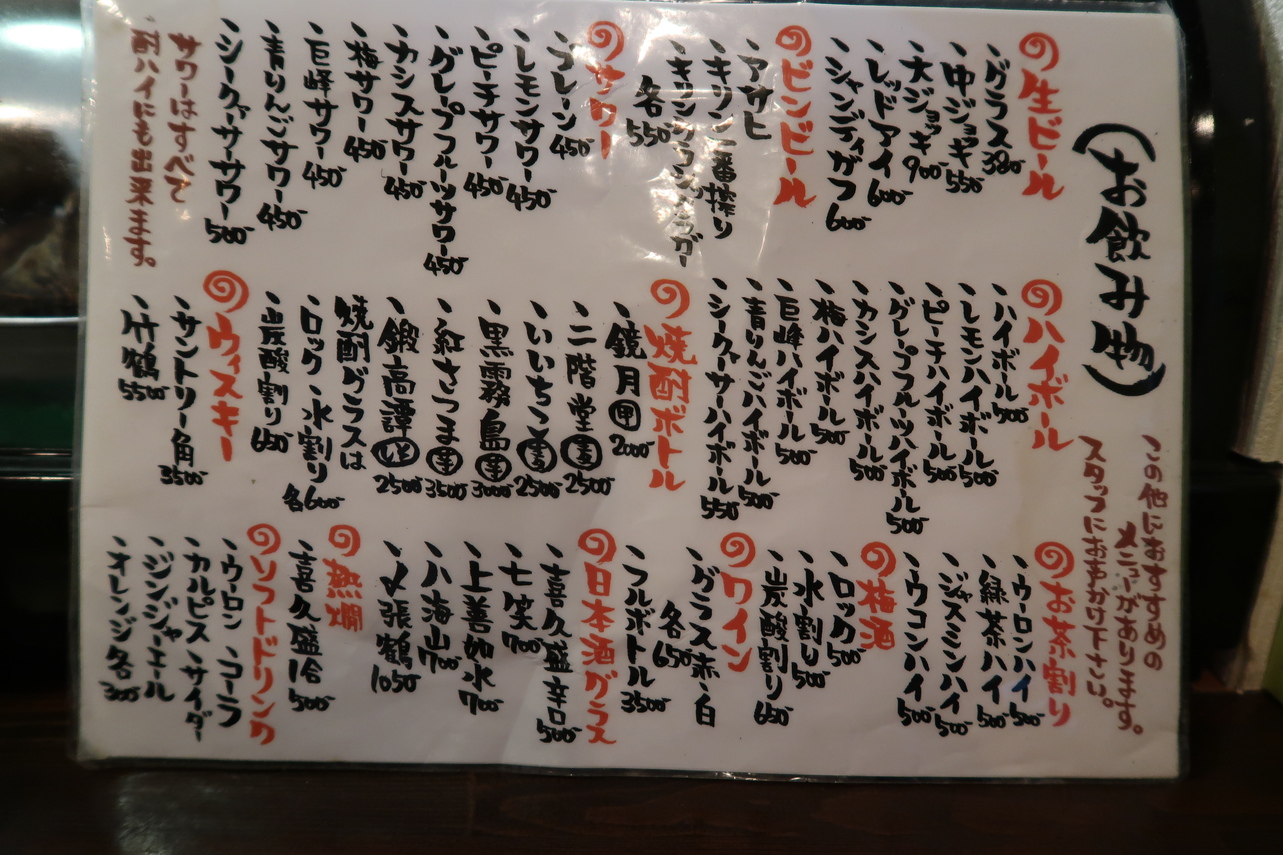 （お飲み物）
この他におすすめの
メニューがあります。
スタッフにおもかけ下さい。
生ビール
グラス 380
中ジョッキ 550
大ジョッキ 900
レッドアイ 600
シャンディガフ 600
ビンビール
アサヒ
キリン一番搾り
キリンクラシックラガー
各550
サワー
プレーン 450
レモンサワー 450
ピーチサワー 450
グレープフルーツサワー 450
カシスサワー 450
梅サワー 450
巨峰サワー 450
青りんごサワー 450
シークァーサーサワー 500
サワーはすべて
酎ハイにも出来ます。
ハイボール
ハイボール 500
レモンハイボール 500
ピーチハイボール 500
グレープフルーツハイボール 500
カシスハイボール 500
梅ハイボール 500
巨峰ハイボール 500
青りんごハイボール 500
シークァーサーハイボール 550
焼酎ボトル
鏡月 甲 2000
二階堂 麦 2500
いいちこ 麦 2500
黒霧島 芋 3000
紅さつま 芋 3500
鍛高譚 しそ 2500
焼酎グラスは
ロック、水割り 各600
炭酸割り 650
ウィスキー
サントリー角 3500
竹鶴 5500
お茶割り
ウーロンハイ 500
緑茶ハイ 500
ジャスミンハイ 500
ウコンハイ 500
梅酒
ロック 500
水割り 500
炭酸割り 650
ワイン
グラス赤・白
各650
フルボトル 3500
日本酒グラス
喜久盛辛口 500
七笑 700
上善如水 700
八海山 700
〆張鶴 1050
熱燗
喜久盛1合 500
ソフトドリンク
ウーロン、コーラ
カルピス、サイダー
ジンジャエール
オレンジ 各300